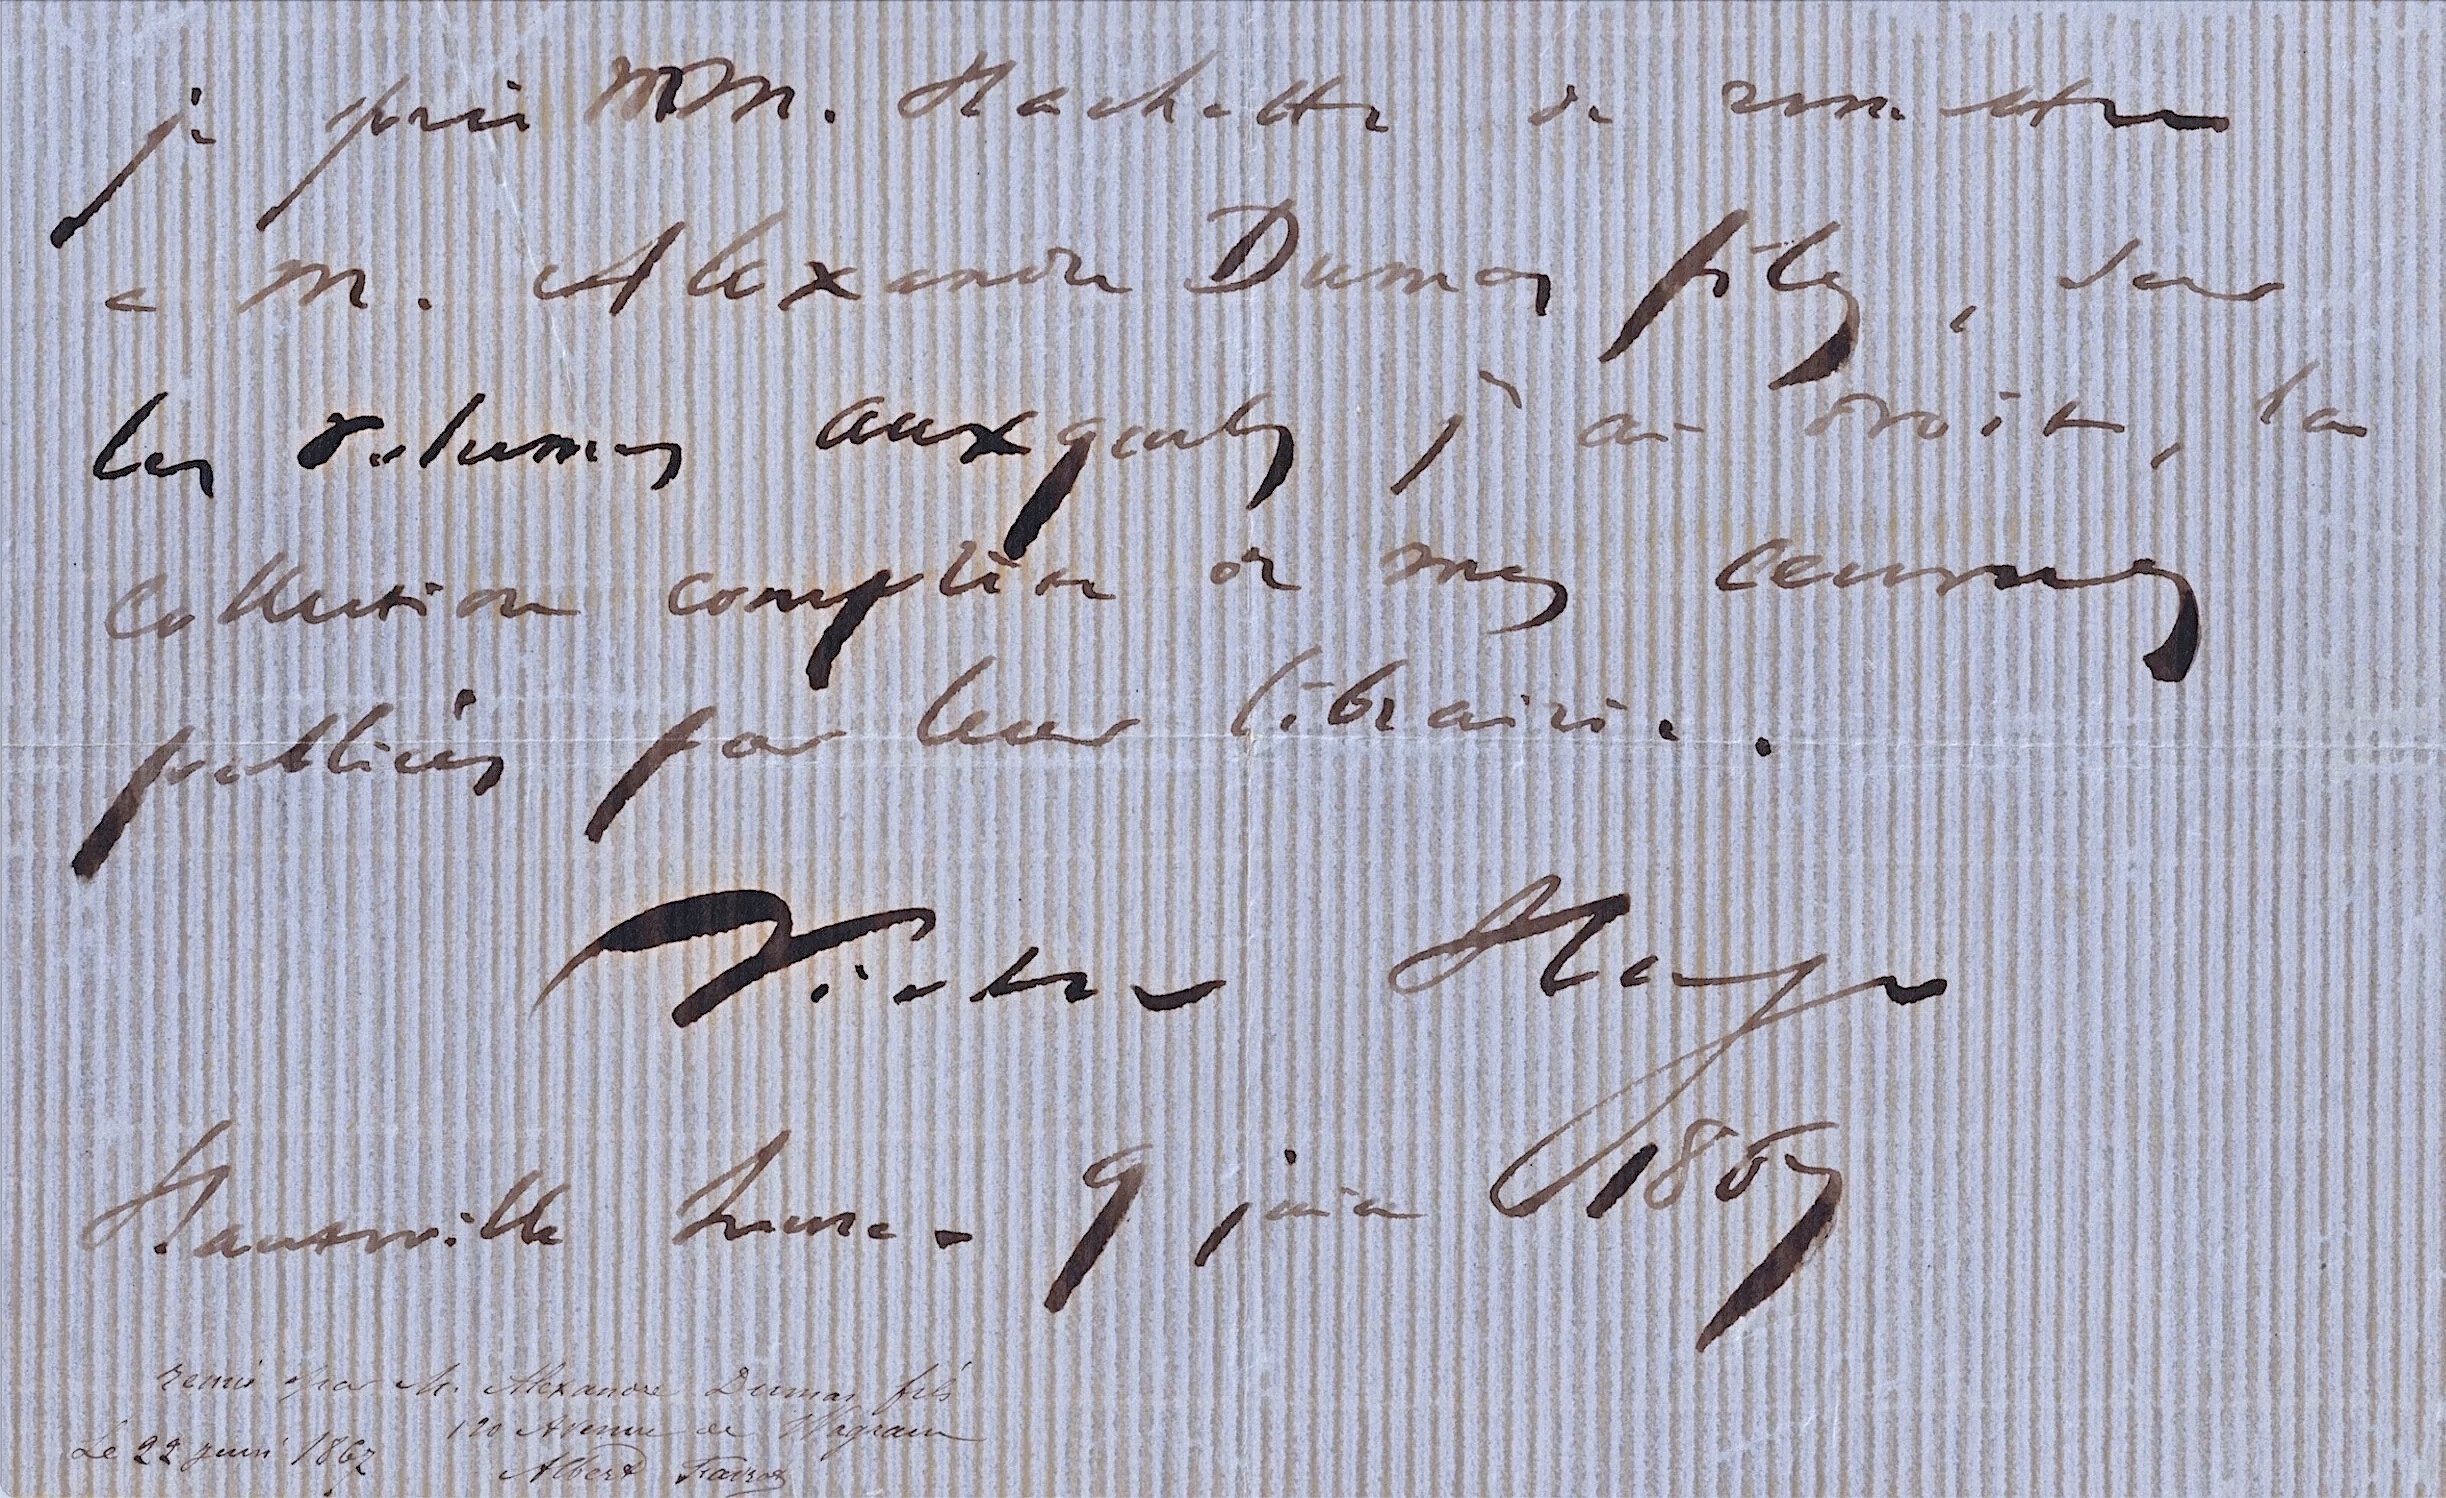 je prie MM. Hachette de remettre
à M. Alexandre Dumas fils, sur
les volumes auxquels j'ai droit, la
collection complète de mes œuvres
publiées par leur librairie.
Victor Hugo
Hauteville house - 9 juin 1867
Remis par M. Alexandre Dumas fils
120 Avenue de Wagram
Le 22 juin 1867 Albert